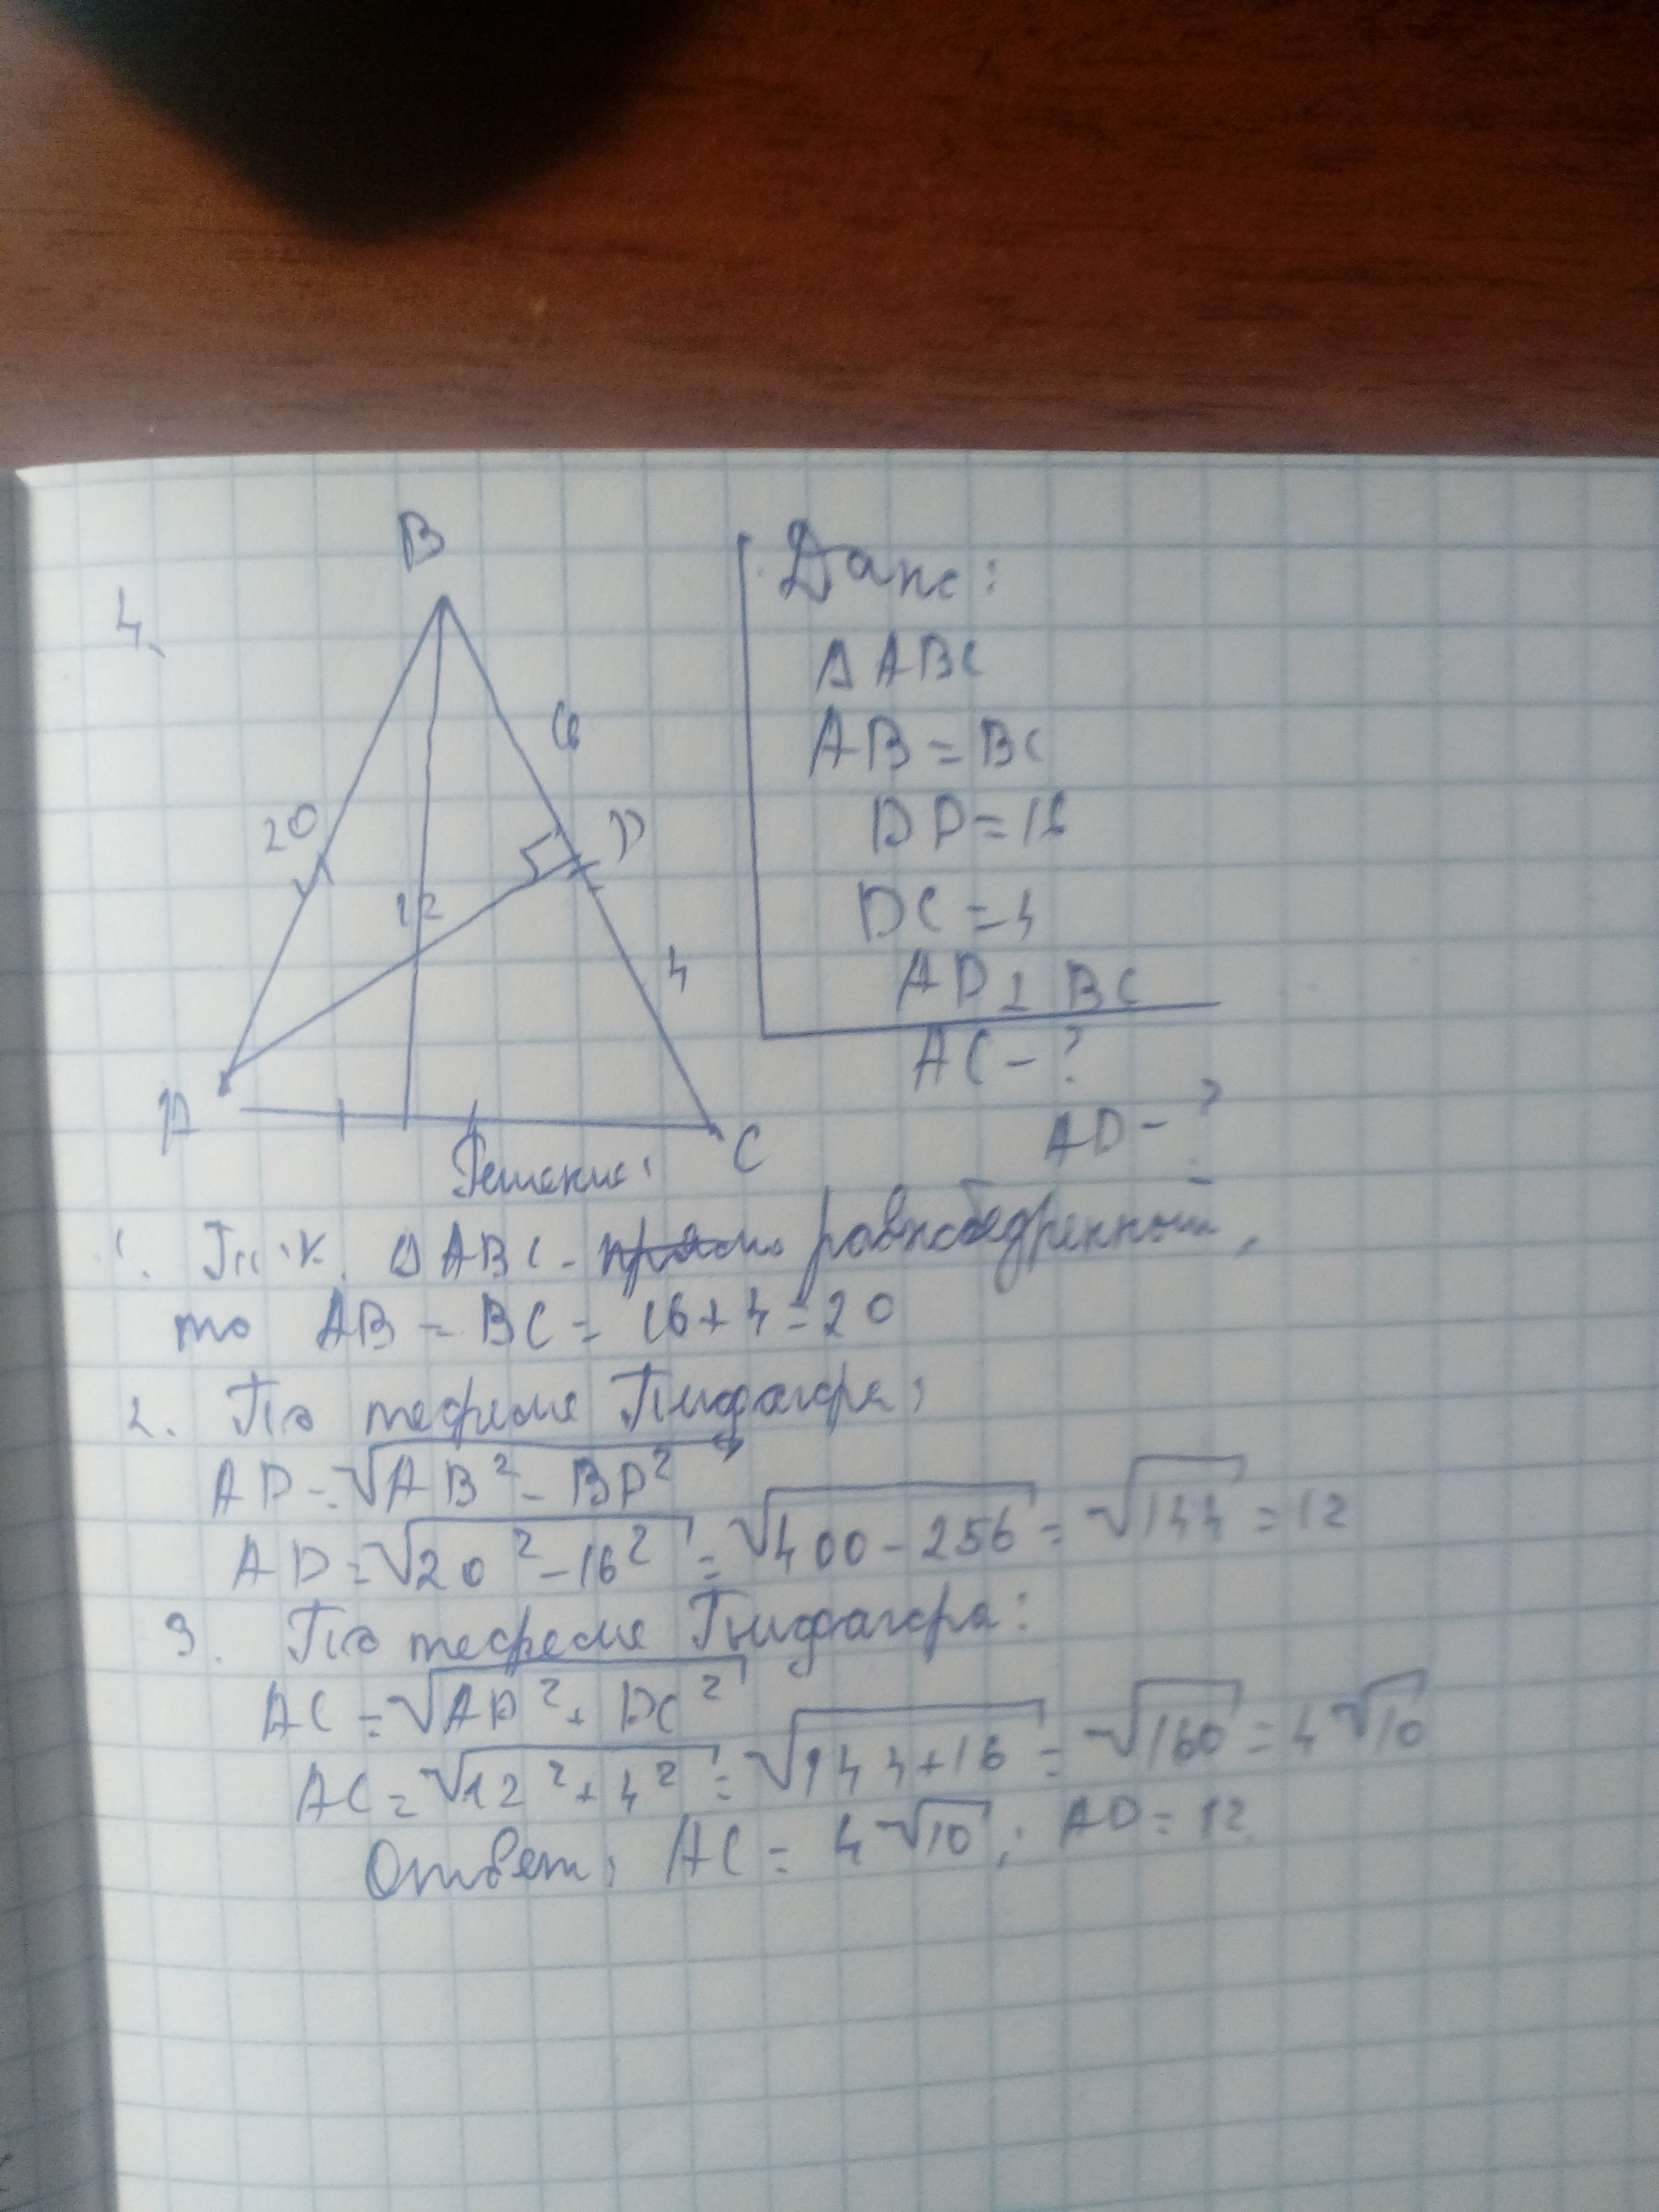 4.
B
20
16
D
12
4
A
C
Дано:
Δ ABC
AB = BC
BD = 16
DC = 4
AD ⊥ BC
AC - ?
AD - ?
Решение:
1. Т.к. Δ ABC - равнобедренный,
то AB = BC = 16 + 4 = 20
2. По теореме Пифагора:
AD = √AB² - BD²
AD = √20² - 16² = √400 - 256 = √144 = 12
3. По теореме Пифагора:
AC = √AD² + DC²
AC = √12² + 4² = √144 + 16 = √160 = 4√10
Ответ: AC = 4√10; AD = 12